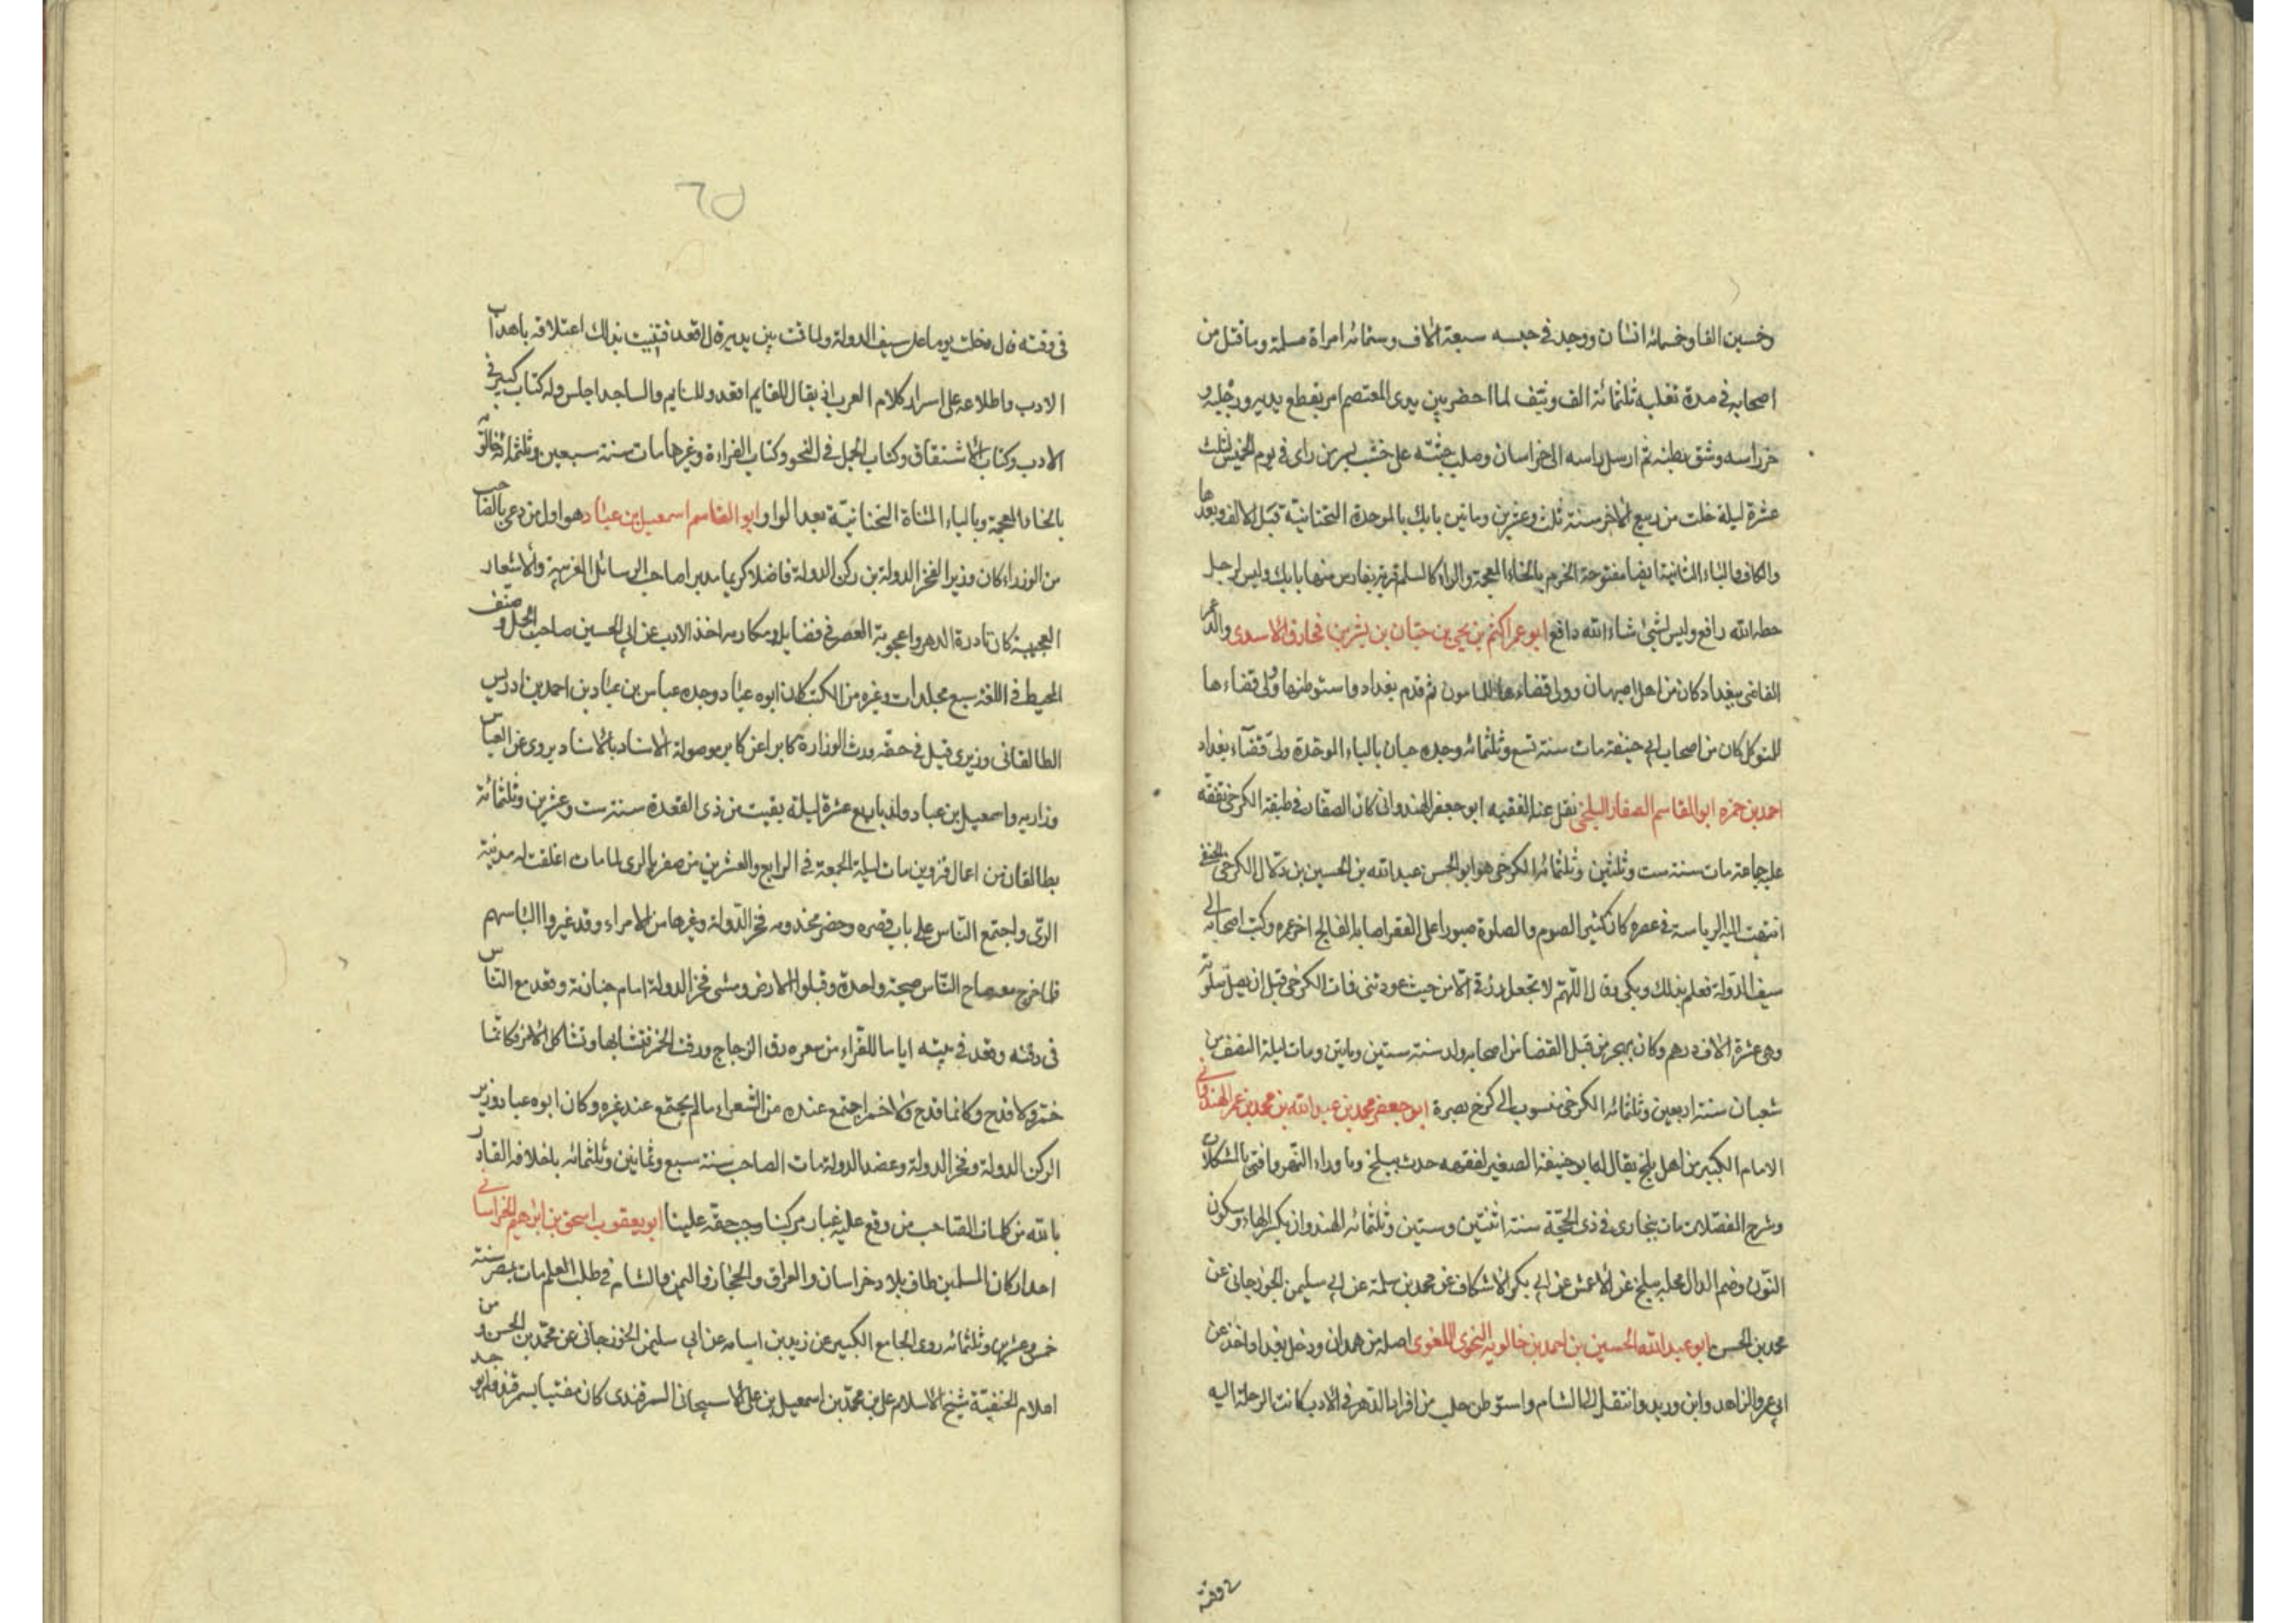 وخمسين الفا وخمسمائه انسان ووجد في حبسه سبعة آلاف وستمائه امراة مسلمة وما قتل من
اصحابه في مدة تغلبه ثلثمائة الف ونيف لما احضر بين يدى المعتصم امر بقطع يديه ورجليه و
خر راسه وشق بطنه ثم ارسل راسه الى خراسان وصلب جثته على خشب بسر من راى في يوم الخميس لثلث
عشرة ليلة خلت من ربيع الآخر سنة ثلث وعشرين وماتين بابك بالموحدة التحتانية قبل الالف وبعدها
والكاف والباء الثانية ايضا مفتوحة الخرم بالخاء المعجمة والراء كالسلم قرية بفارس منها بابك وليس لرجل
حطه الله رافع وليس لشئ شاء الله دافع ابو عمر اكثم بن يحيى بن حبان بن بشر بن مخارق الاسدى والد عمر
القاضى ببغداد كان من اهل اصبهان وولى قضاءها للمامون ثم قدم بغداد واستوطنها وولى قضاءها
للمتوكل كان من اصحاب ابي حنيفة مات سنة تسع وثلثمائه وجده حبان بالباء الموحدة ولى قضآء بغداد
احمد بن حمزه ابو القاسم الصفار البلخى نقل عنه الفقيه ابو جعفر الهندوانى كان الصفار في طبقة الكرخى تفقه
على جماعة مات سنة ست وثلثين وثلثمائه الكرخى هو ابو الحسن عبد الله بن الحسين بن دلال الكرخى الحنفى
انتهت اليه الرياسة في عصره كان كثير الصوم والصلوة صبورا على الفقر اصابه الفالج اخر عمره وكتب اصحابه الى
سيف الدولة فعلم بذلك وبكى وقال اللهم لا تجعل رزقى الا من حيث عودتنى فمات الكرخى قبل ان يصل صلوته
وهى عشرة آلاف درهم وكان يهجر من قبل القضا من اصحابه ولد سنة ستين وماتين ومات ليلة النصف من
شعبان سنة اربعين وثلثمائه الكرخى منسوب الى كرخ بصرة ابو جعفر محمد بن عبد الله بن محمد بن عمر الهندوانى
الامام الكبير من اهل بلخ يقال له ابو حنيفة الصغير لفقهه حدث ببلخ وما وراء النهر وافتى بالمشكلات
وشرح المفصلات مات ببخارى في ذى الحجة سنة اثنتين وستين وثلثمائه الهندوان بكسر الهاء وسكون
النون وضم الدال محلة ببلخ عن الاعمش عن ابي بكر الاشكاف عن محمد بن سلمة عن ابي سليمن الجوزجانى عن
محمد بن الحسن ابو عبد الله الحسين بن احمد بن خالويه النحوى اللغوى اصله من همدان ودخل بغداد واخذ عن
ابي عمرو الزاهد وابن دريد وانتقل الى الشام واستوطن حلب من افراد الدهر في الادب كانت الرحلة اليه
في وقته
٦٥
في وقته قال دخلت يوما على سيف الدولة ولما قمت بين يديه قال اقعد فتبينت بذلك اعتلاقه باهداب
الادب واطلاعه على اسرار كلام العرب اى يقال للقايم اقعد وللنايم والساجد اجلس وله كتاب كبير في
الادب وكتاب الاشتقاق وكتاب الجمل في النحو وكتاب القراءة وغيرها مات سنة سبعين وثلثمائه خالويه
بالخاء المعجمة وبالياء المثناة التحتانية بعد الواو ابو القاسم اسمعيل بن عباد هو اول من دعى بالصاحب
من الوزراء كان وزيرا لفخر الدولة بن ركن الدولة فاضلا كريما مدبرا صاحب الرسائل الغريبة والاشعار
العجيبة كان نادرة الدهر واعجوبة العصر في فضايله ومكارمه اخذ الادب عن ابي الحسين صاحب المجمل وصنف
المحيط في اللغة سبع مجلدات وغيره من الكتب كان ابوه عباد وجده عباس بن عباد بن احمد بن ادريس
الطالقانى وزيرى قيل في حقه ورث الوزارة كابرا عن كابر موصولة الاسناد بالاسناد يروى عن العباس
وزاريه واسمعيل بن عباد ولد باربع عشرة ليلة بقيت من ذى القعدة سنة ست وعشرين وثلثمائة
بطالقان من اعمال قزوين مات ليلة الجمعة في الرابع والعشرين من صفر بالرى لما مات اغلقت له مدينة
الرى واجتمع الناس على باب قصره وحضر مخدومه فخر الدولة وغيرها من الامراء وقد غيروا الباسهم
فلما خرج نعصاح الناس صيحة واحدة وقبلوا الارض ومشى فخر الدولة امام جنازته وقعد مع الناس
في دفنه وقعد في بيته اياما للقراء من سعره رق الزجاج ورقت الخمر فتشابها وتشاكل الامر فكانما
خمر ولا قدح وكانما قدح ولا خمر اجتمع عنده من الشعراء ما لم يجتمع عند غيره وكان ابوه عباد وزير
الركن الدولة وفخر الدولة وعضد الدولة مات الصاحب سنة سبع وثمانين وثلثمائه باخلافه القادر
بالله من كلمات الصاحب من وقع عليه غبار مركبنا وجب حقه علينا ابو يعقوب اسحق بن ابراهيم الخراسانى
احد اركان المسلمين طاف بلاد خراسان والعراق والحجاز واليمن والشام في طلب العلم مات بمصر سنة
خمس وعشرين وثلثمائه روى الجامع الكبير عن زيد بن اسامه عن ابي سليمن الجوزجانى عن محمد بن الحسن و من
اعلام الحنفية شيخ الاسلام على بن محمد بن اسمعيل بن على الاسبيجانى السمرقندى كان مفتيا بسمرقند فلم يوجد